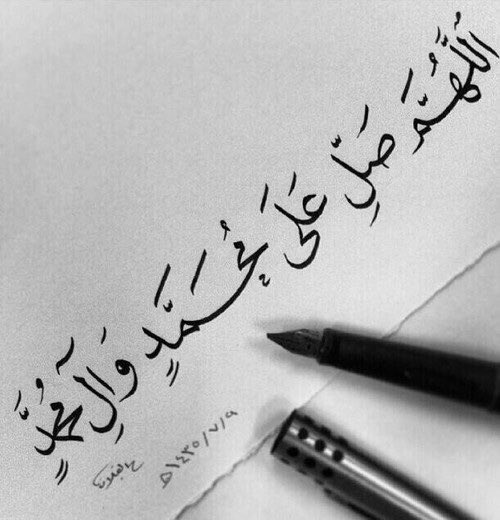 اَللّٰهُمَّ صَلِّ عَلَى مُحَمَّدٍ وَآلِ مُحَمَّدٍ
١٤٣٥/٧/٩ هـ